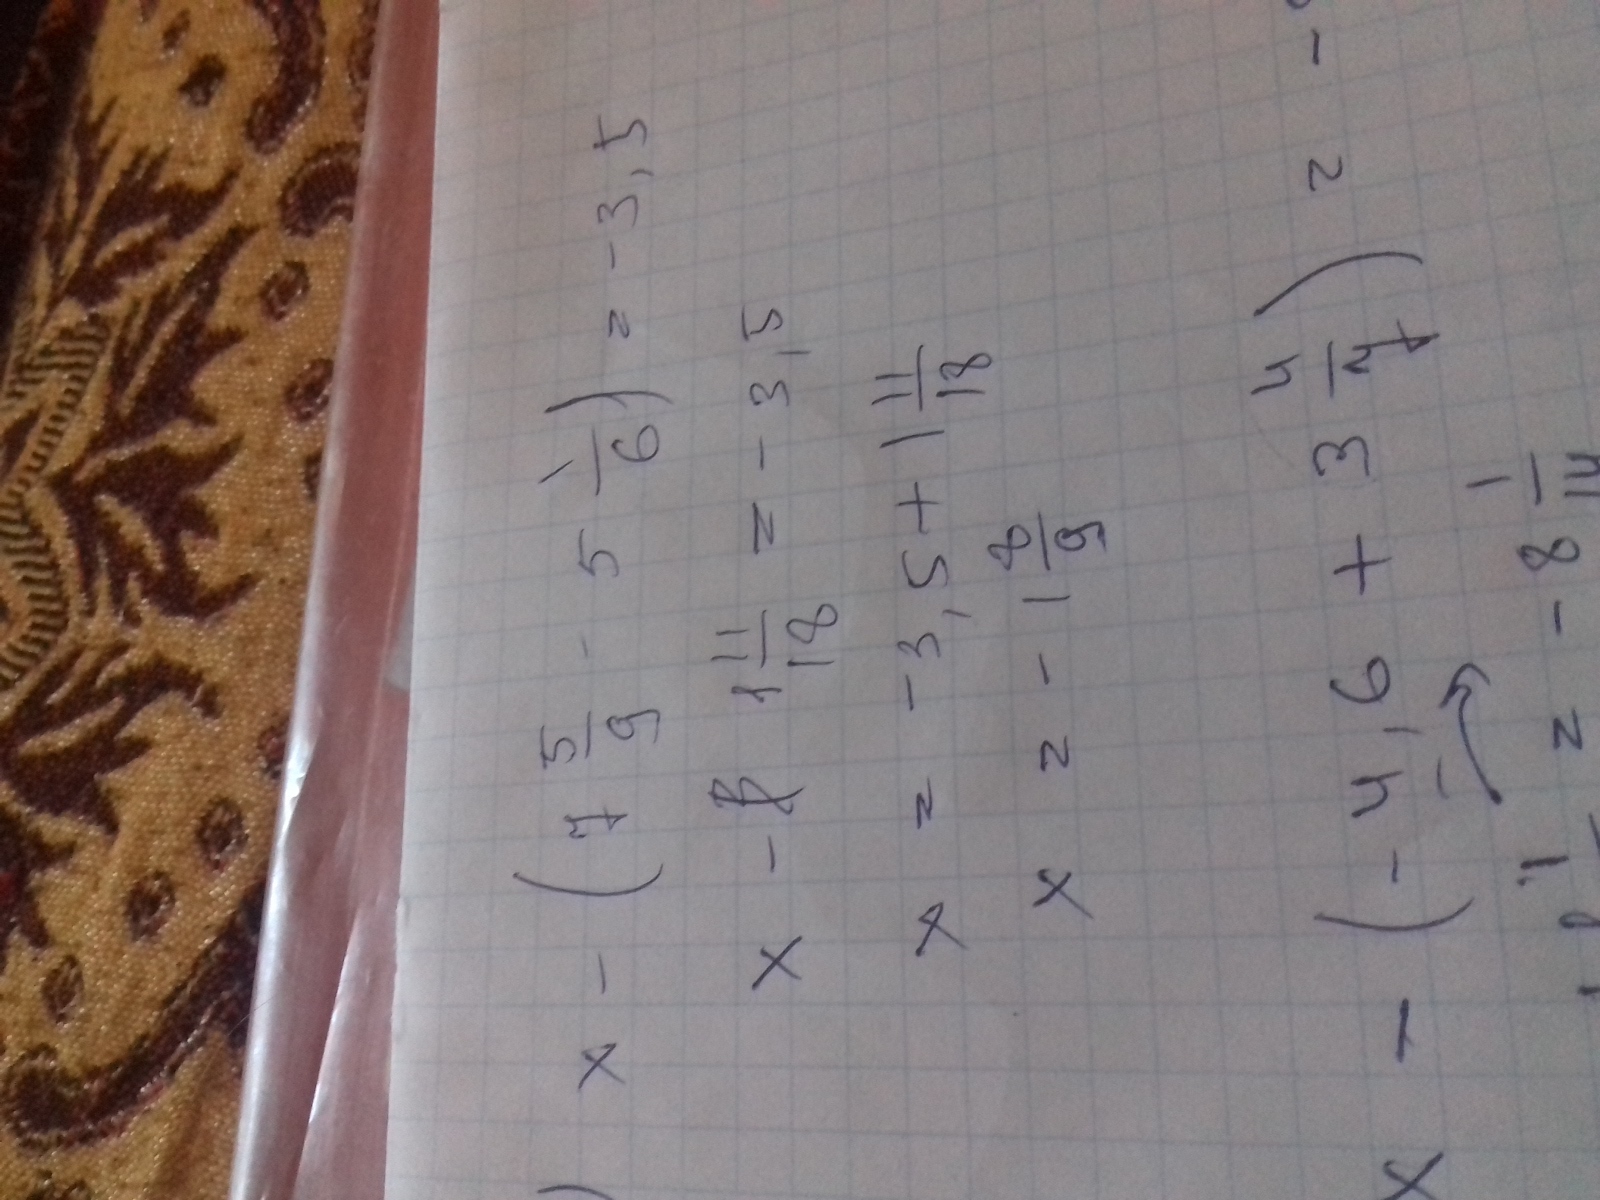 x - (7 5/9 - 5 1/6) = -3,5
x - 1 11/18 = -3,5
x = -3,5 + 1 11/18
x = -1 8/9
x - (-4,6 + 3 4/7) = -
= -8 1/14